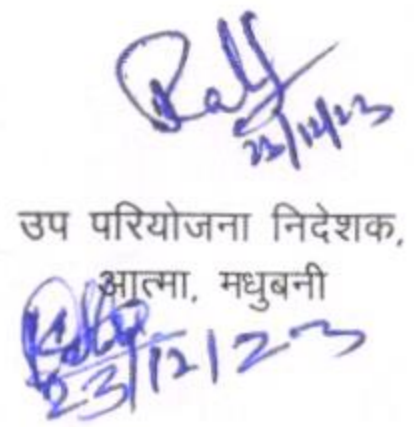 23/12/23
उप परियोजना निदेशक,
आत्मा, मधुबनी
23/12/23